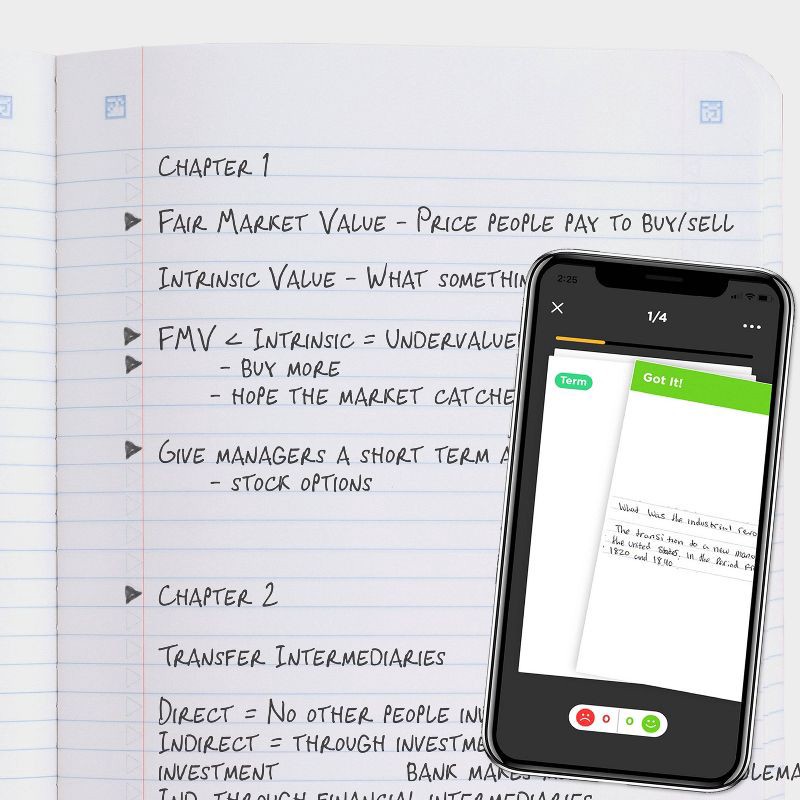 CHAPTER 1
FAIR MARKET VALUE - PRICE PEOPLE PAY TO BUY/SELL
INTRINSIC VALUE - WHAT
FMV < INTRINSIC =
- BUY MORE
- HOPE THE MARKET
GIVE MANAGERS A SHORT TERM
- STOCK OPTIONS
CHAPTER 2
TRANSFER INTERMEDIARIES
DIRECT = NO OTHER PEOPLE
INDIRECT = THROUGH
INVESTMENT BANK MAKES
IND. THROUGH FINANCIAL INTERMEDIARIES
2:25
1/4
Term
Got It!
What was the industrial
The transition to a new
the United States, in the Period
1820 and 1840
0 0